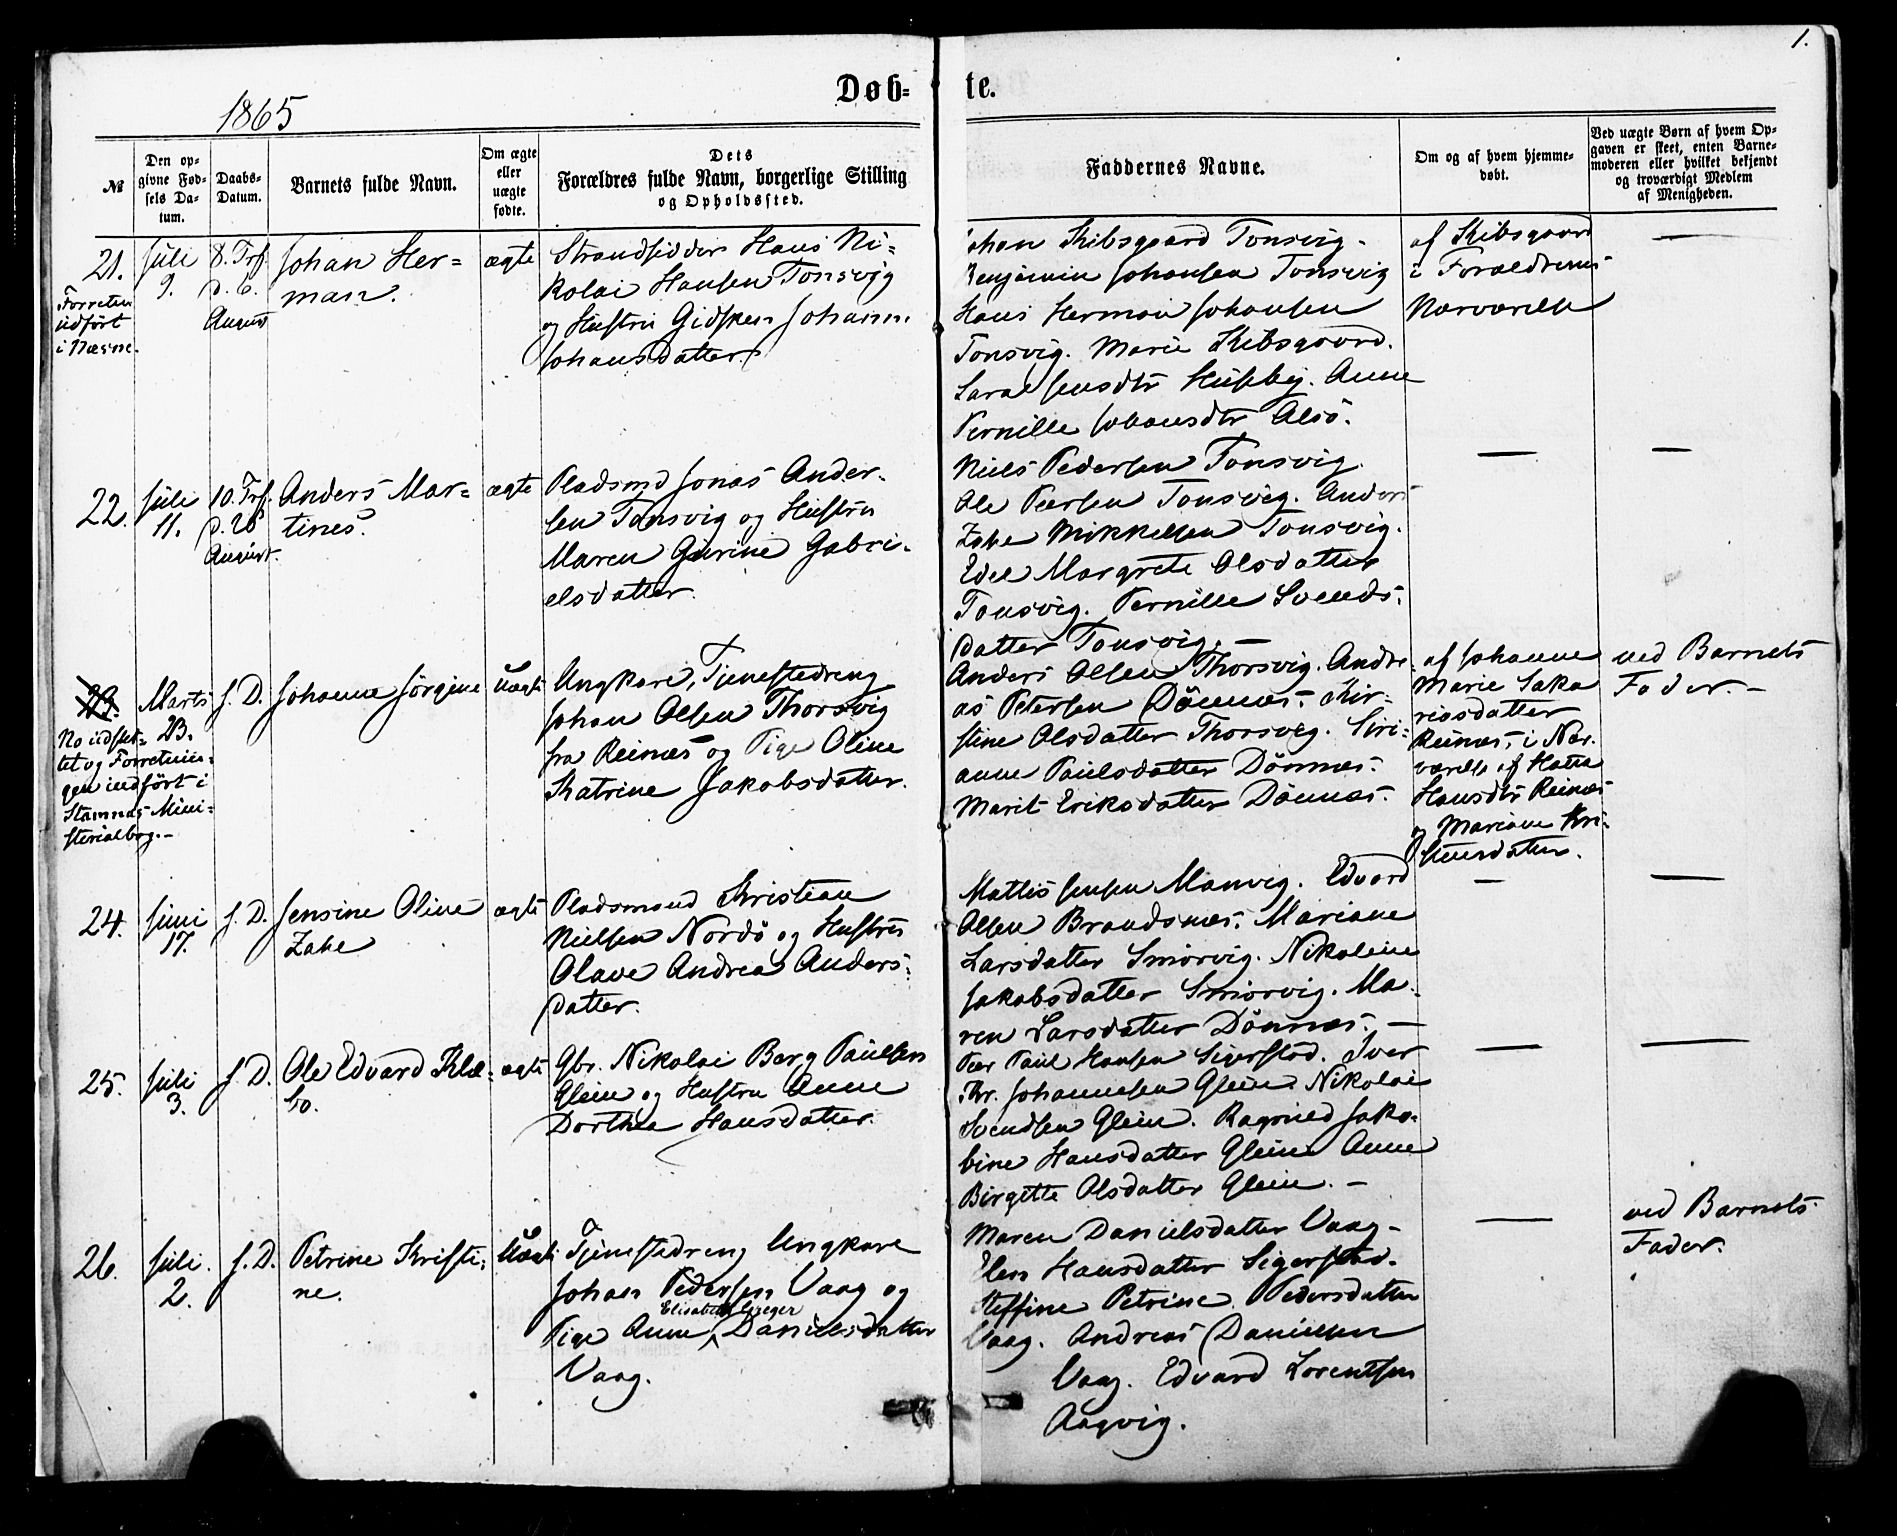 1.
Døb-te.
1865
№
Den op-
givne Fød-
sels Da-
tum.
Daabs-
Datum.
Barnets fulde Navn.
Om ægte
eller
uægte
fødte.
Dets
Forældres fulde Navn, borgerlige Stilling
og Opholdssted.
Faddernes Navne.
Om og af hvem hjemme-
døbt.
Ved uægte Børn af hvem Op-
gaven er skeet, enten Barne-
moderen eller hvilket bekjendt
og troværdigt Medlem
af Menigheden.
21.
Forretn
udført
i Næsne.
Juli
9.
8. Trf.
d. 6.
August
Johan Her=
man.
ægte
Strandsidder Hans Ni=
kolai Hansen Tonsvig
og Hustru Gidsken Johann.
Johansdatter.
Johan Kibsgaard Tonsvig.
Benjamin Johansen Tonsvig
Hans Herman Johansen
Tonsvig. Marie Kibsgaard.
Sara Jensdtr Husby. Anne
Pernille Johansdtr Alsö.
af Kibsgaard
i Forældrenes
Nærværelse
—
22.
Juli
11.
10. Trf.
d. 20
August.
Anders Mar=
tines.
ægte
Pladsmd Jonas Ander-
sen Tonsvig og Hustru
Maren Gurine Gabri-
elsdatter.
Niels Pedersen Tonsvig.
Ole Peersen Tonsvig. Anders
Zahe Mikkelsen Tonsvig.
Edel Margrete Olsdatter
Tonsvig. Pernille Svends-
datter Tonsvig. —
—
—
23.
No udslet-
tet og Forretnin-
gen indført i
Stamnæs Mini-
sterialbog. —
Marts
23.
s. D.
Johanne Jørgine
Uægte
Ungkarl, Tjenestedreng
Johan Olsen Thorsvig
fra Reinæs og Pige Oline
Katrine Jakobsdatter.
Anders Olsen Thorsvig. Andre-
as Petersen Dönnæs. Kir-
stine Olsdatter Thorsvig. Siri-
anne Paulsdatter Dönnæs.
Marit Eriksdatter Dönnæs.
af Johanne
Marie Saka
riasdatter
Reinæs, i Nær-
værelse af
Hansdtr Reinæs
og Mariane Kri-
stensdatter.
ved Barnets
Fader. —
24.
Juni
17.
s. D.
Jensine Oline
Zahe
ægte
Pladsmand Kristian
Nielsen Nordö og Hustru
Olave Andrea Anders-
datter.
Mattis Jensen Manvig. Edvard
Olsen Brandsnæs. Mariane
Larsdatter Smörvig. Nikoline
Jakobsdatter Smörvig. Ma-
ren Larsdatter Dönnæs. —
—
—
25.
Juli
3.
s. D.
Ole Edvard Klæ-
bo.
ægte
Gbr. Nikolai Berg Paulsen
Glein og Hustru Anne
Dorthea Hansdatter.
Peer Paul Hansen Sigerstad. Iver
Kr. Johannesen Glein. Nikolai
Svendsen Glein. Ragnild Jako-
bine Hansdatter Glein Anne
Birgitte Olsdatter Glein. —
—
—
26.
Juli
2.
s. D.
Petrine Kristi-
ne.
Uægte
Tjenestedreng Ungkarl
Johan Pedersen Vaag og
Elisabeth
Pige Anne Danielsdatter
Vaag.
Maren Danielsdatter Vaag-
Elen Hansdatter Sigerstad.
Steffine Petrine Pedersdatter
Vaag. Andreas Danielsen
Vaag. Edvard Lorentsen
Aagvig.
—
ved Barnets
Fader.